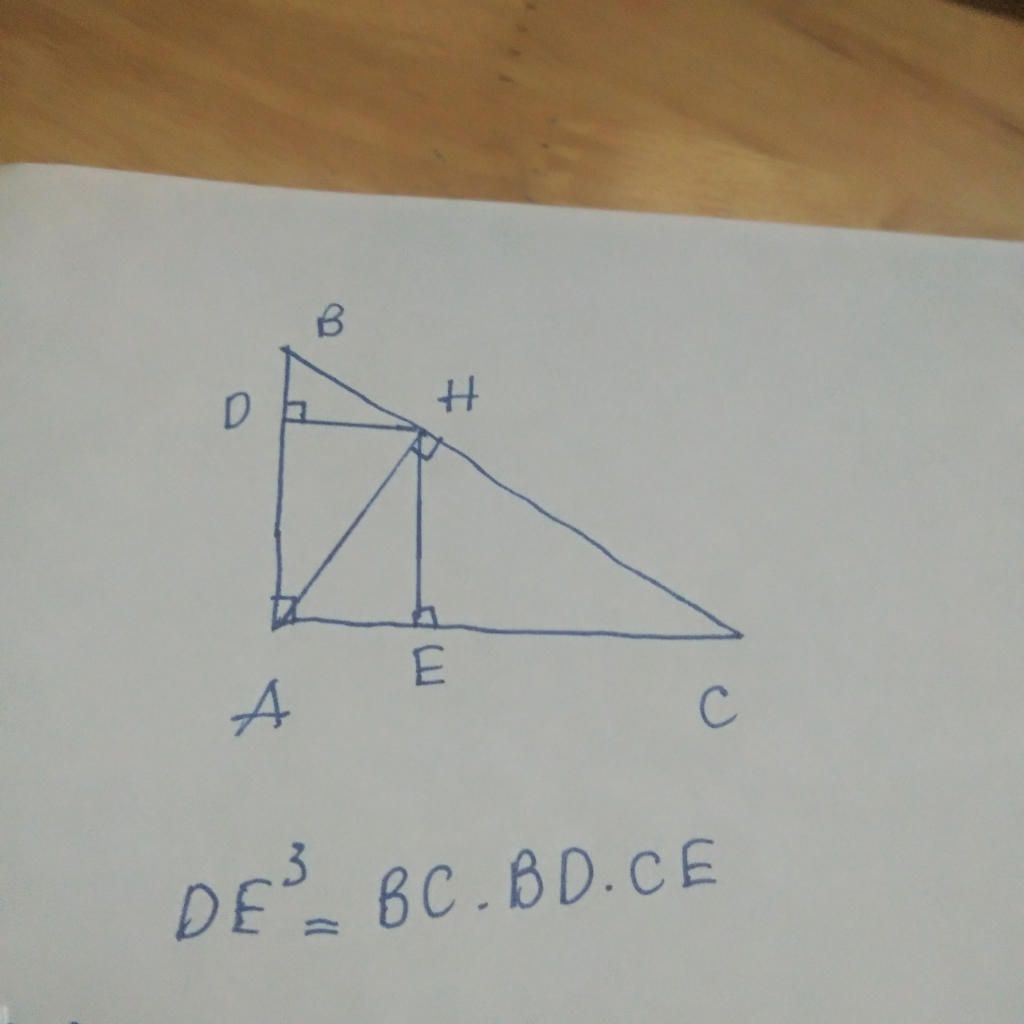 B
D
H
A
E
C
DE³ = BC . BD . CE